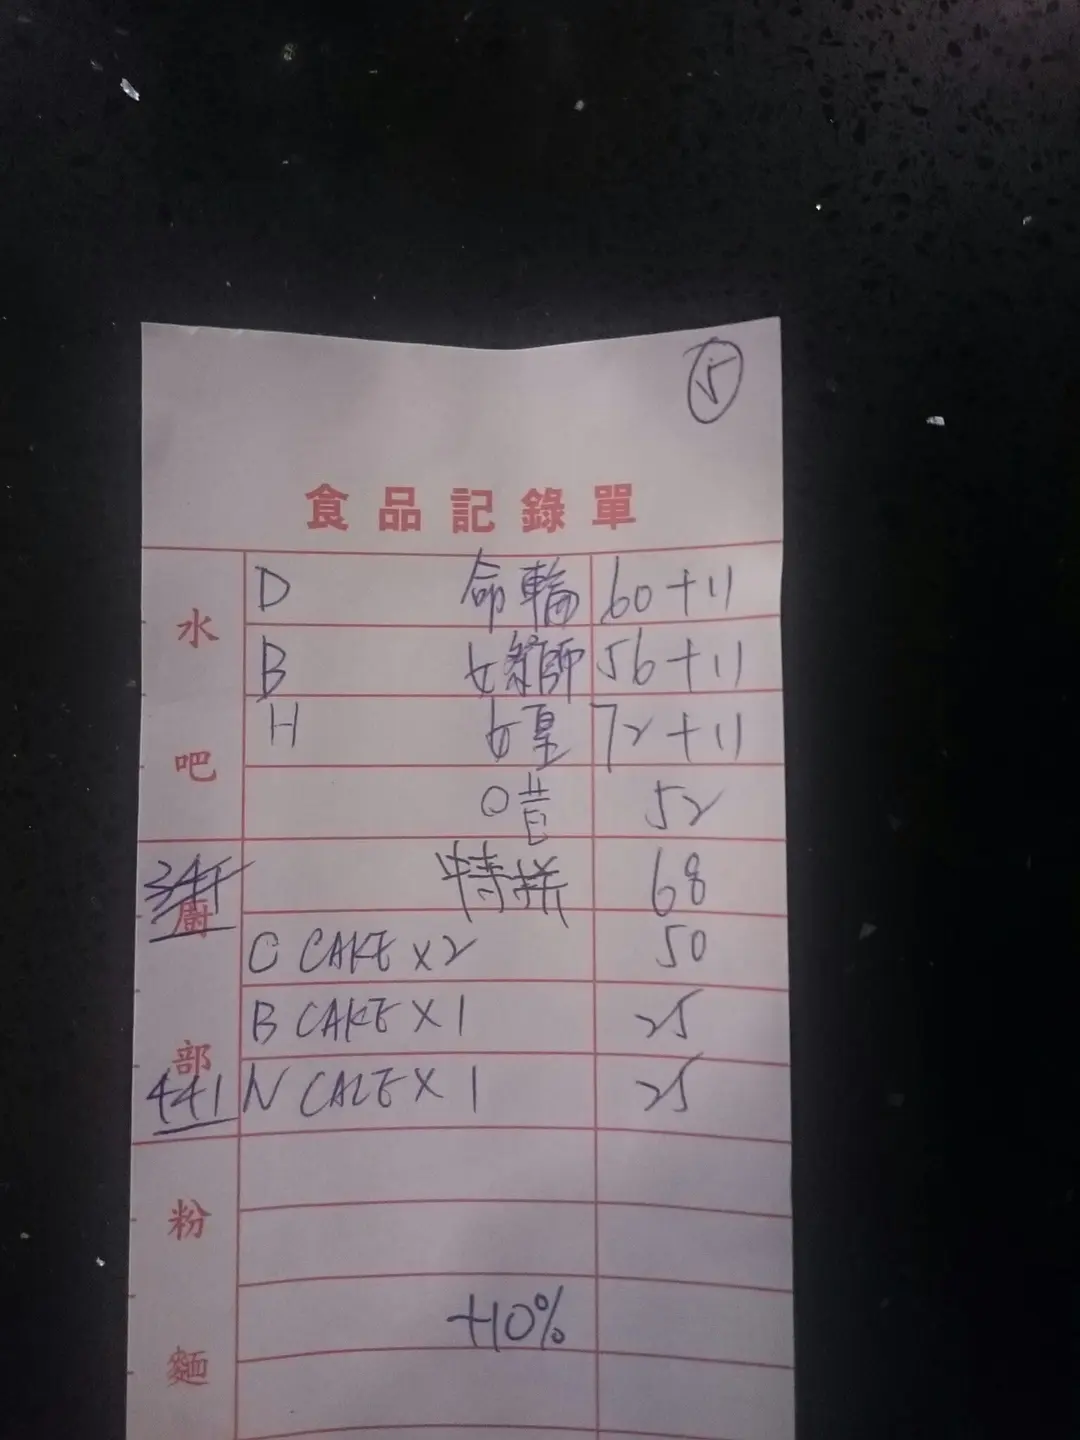 5
食品記錄單
水吧
D 命輪 60+11
B 女祭師 56+11
H 女皇 72+11
52
廚部
特拼 68
C CAKE X2 50
B CAKE X1 25
441
N CAKE X1 25
粉麵
+10%